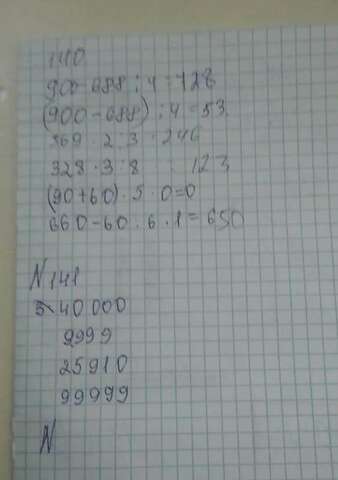 140
900-688:4=728
(900-688):4=53
369:2:3=246
328·3:8 123
(90+60)·5·0=0
660-60:6·1=650
N 141
40 000
9999
25910
99999
N